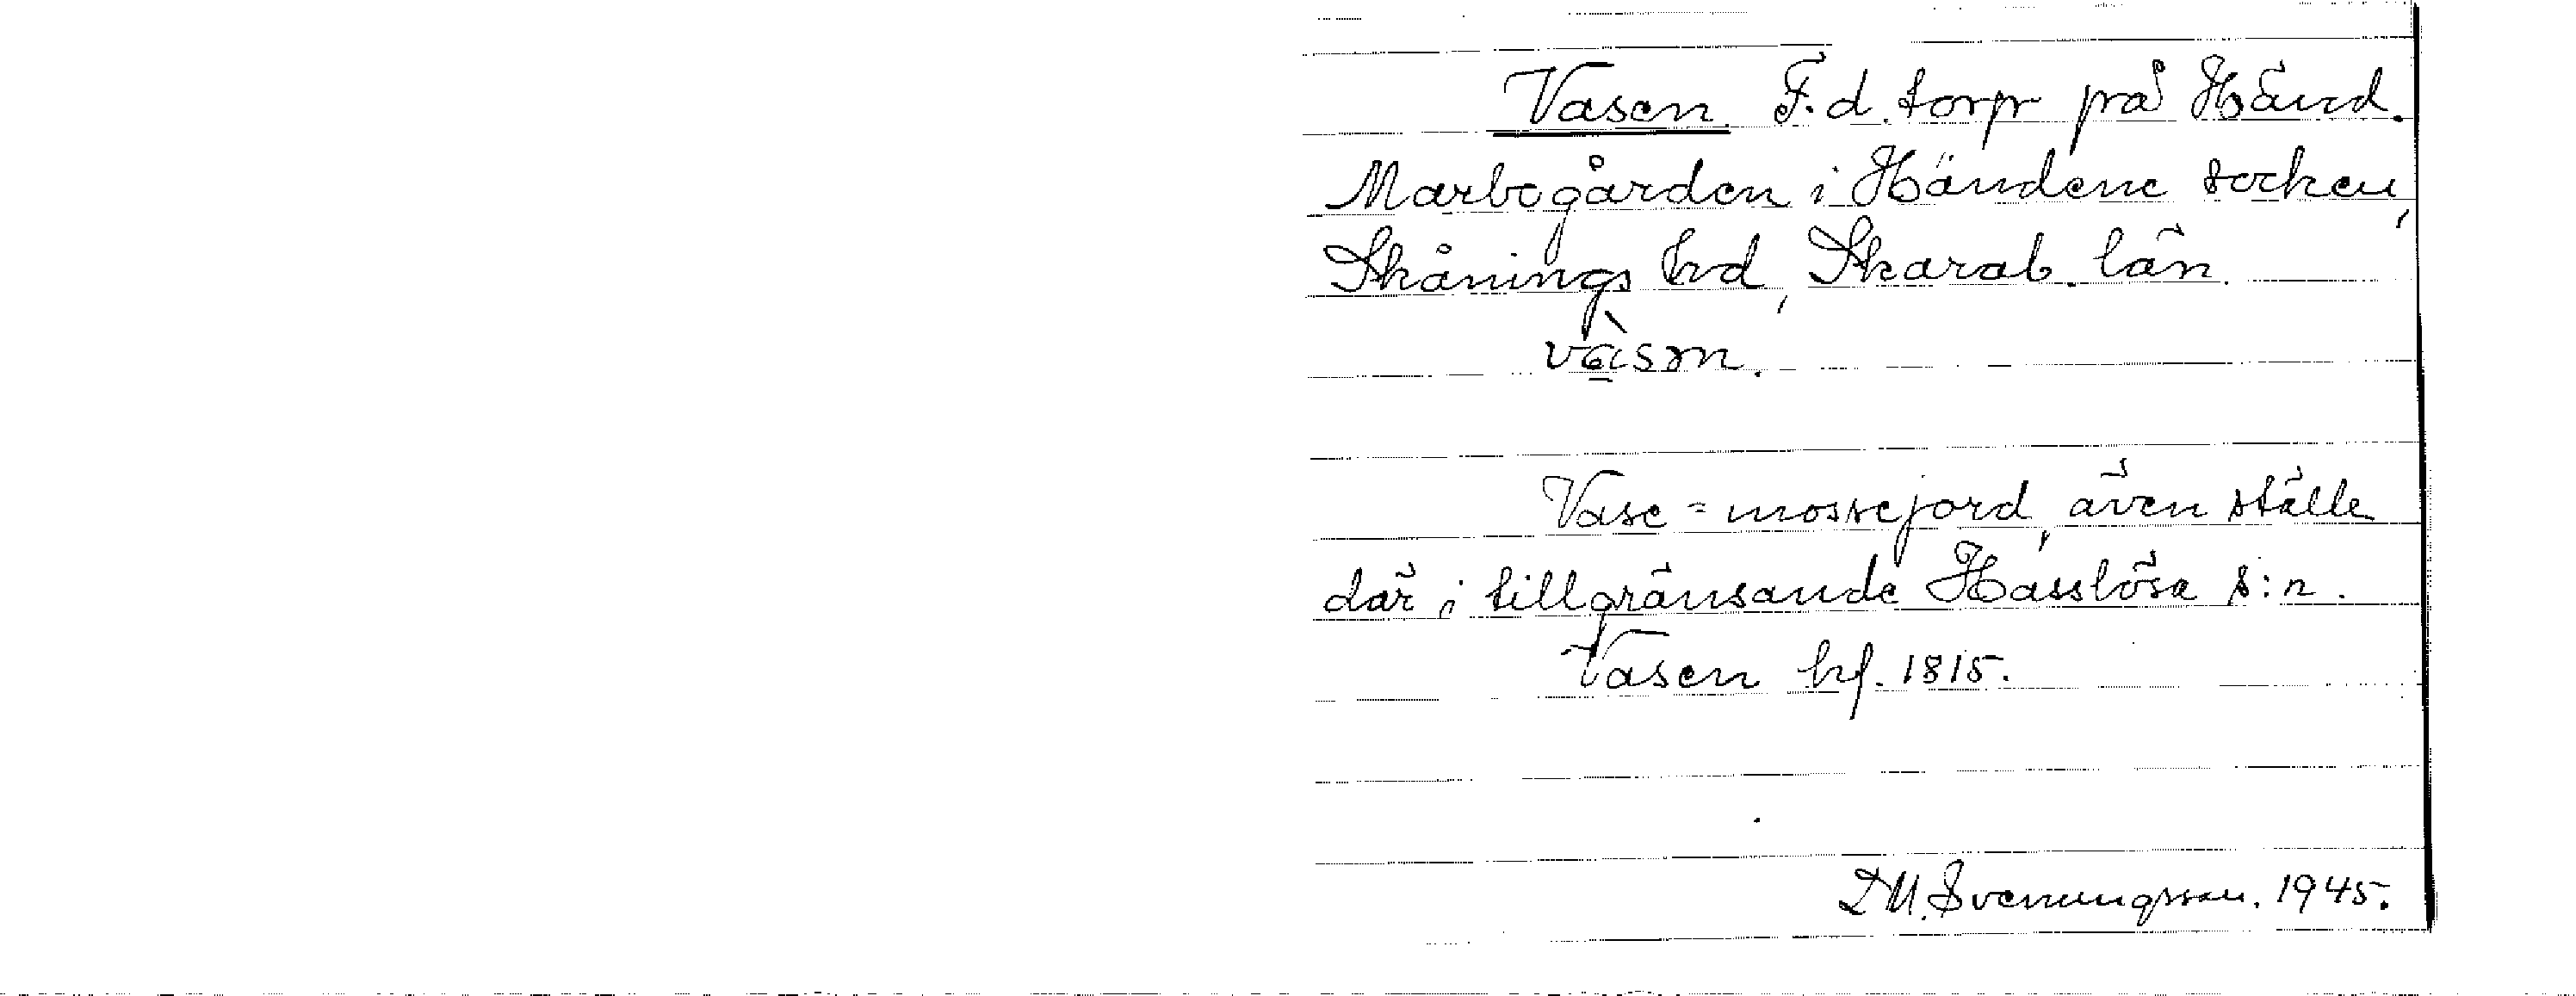 Vasen. F.d. torp på Händ.
Marbogården i Händene socken,
Skånings hd, Skarab. län.
vàsən.
Vase = mossejord, även ställe
där i tillgränsande Hasslösa s:n.
Vasen hf. 1815.
D M. Svenungsson. 1945.